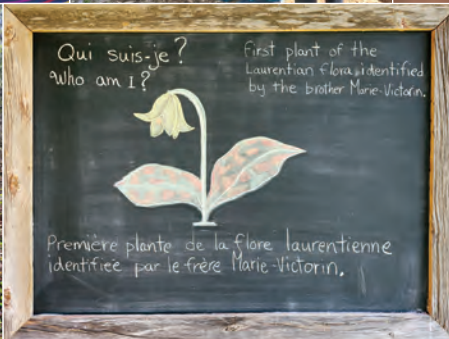 Qui suis-je?
Who am I?
first plant of the
Laurentian flora identified
by the brother Marie-Victorin.
Première plante de la flore laurentienne
identifiée par le frère Marie-Victorin.